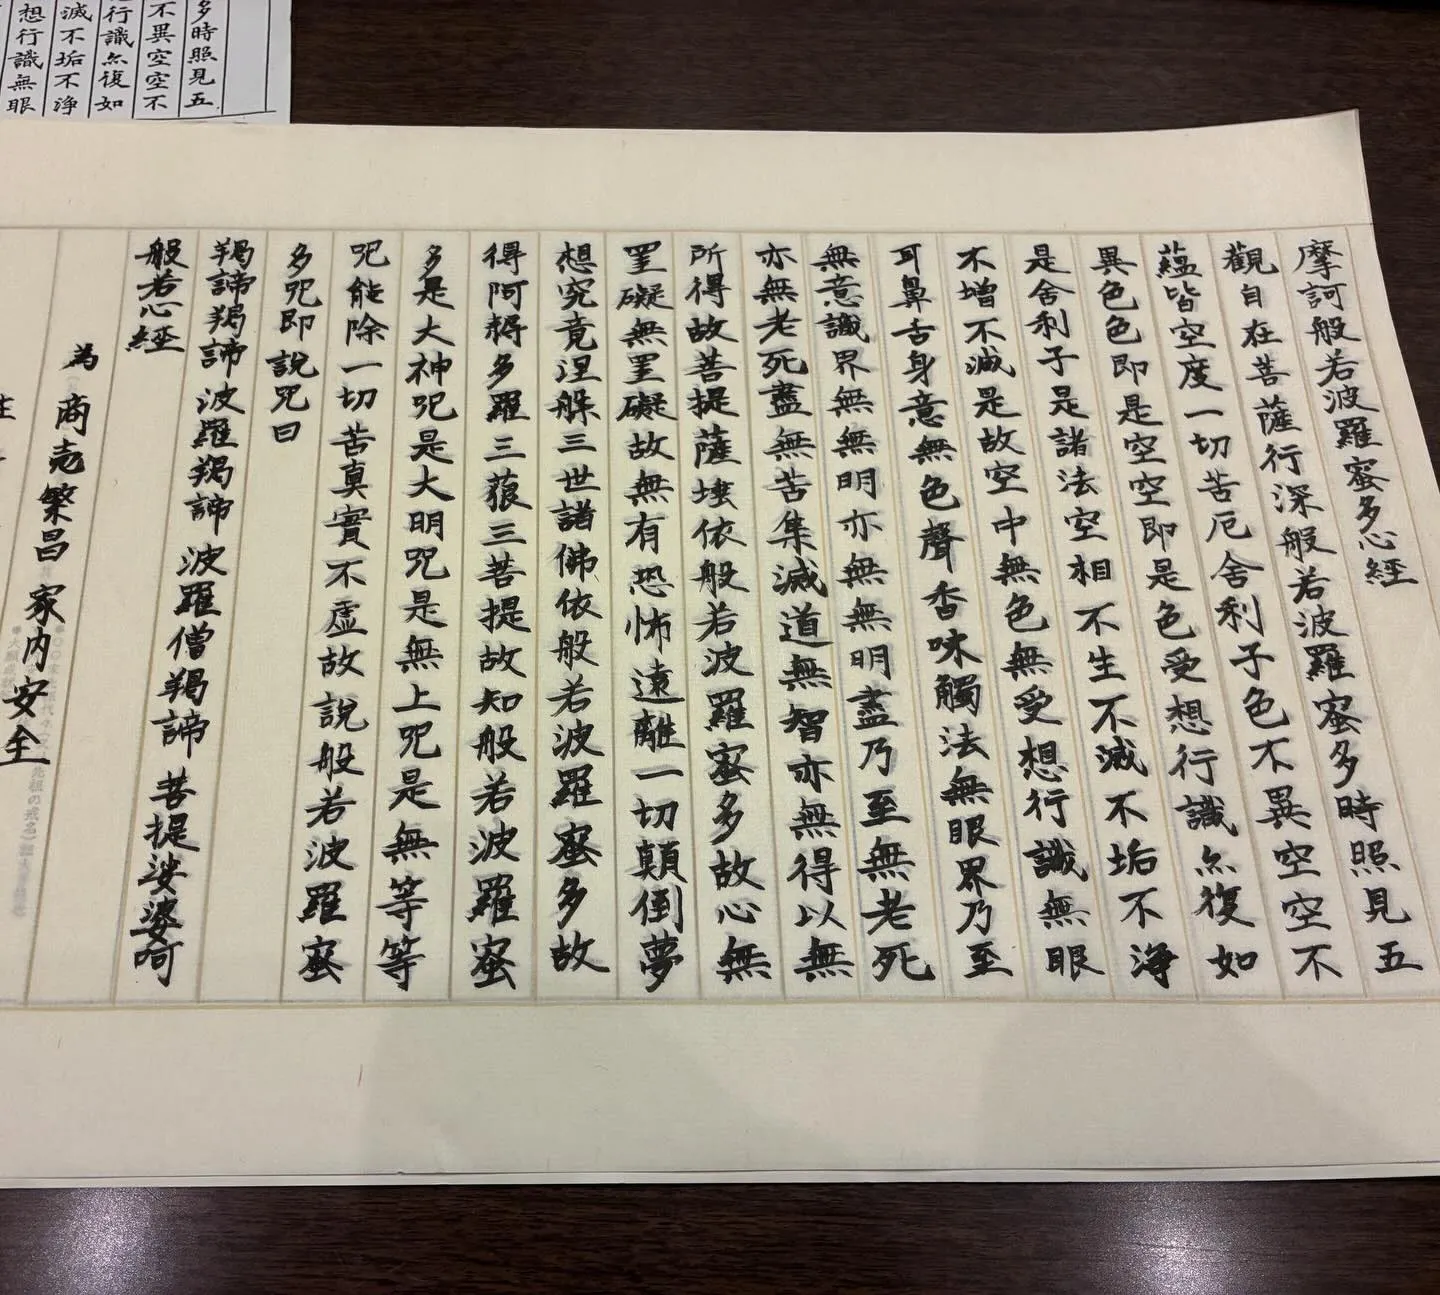 摩訶般若波羅蜜多心経
觀自在菩薩行深般若波羅蜜多時照見五
蘊皆空度一切苦厄舎利子色不異空空不
異色色即是空空即是色受想行識亦復如
是舎利子是諸法空相不生不滅不垢不淨
不增不滅是故空中無色無受想行識無眼
耳鼻舌身意無色聲香味觸法無眼界乃至
無意識界無無明亦無無明盡乃至無老死
亦無老死盡無苦集滅道無智亦無得以無
所得故菩提薩埵依般若波羅蜜多故心無
罣礙無罣礙故無有恐怖遠離一切顛倒夢
想究竟涅槃三世諸佛依般若波羅蜜多故
得阿耨多羅三藐三菩提故知般若波羅蜜
多是大神咒是大明咒是無上咒是無等等
咒能除一切苦真實不虛故說般若波羅蜜
多咒即說咒曰
羯諦羯諦波羅羯諦波羅僧羯諦菩提娑婆呵
般若心経
為 商売繁昌 家内安全
多時照見五
不異空空不
行識亦復如
滅不垢不淨
想行識無眼